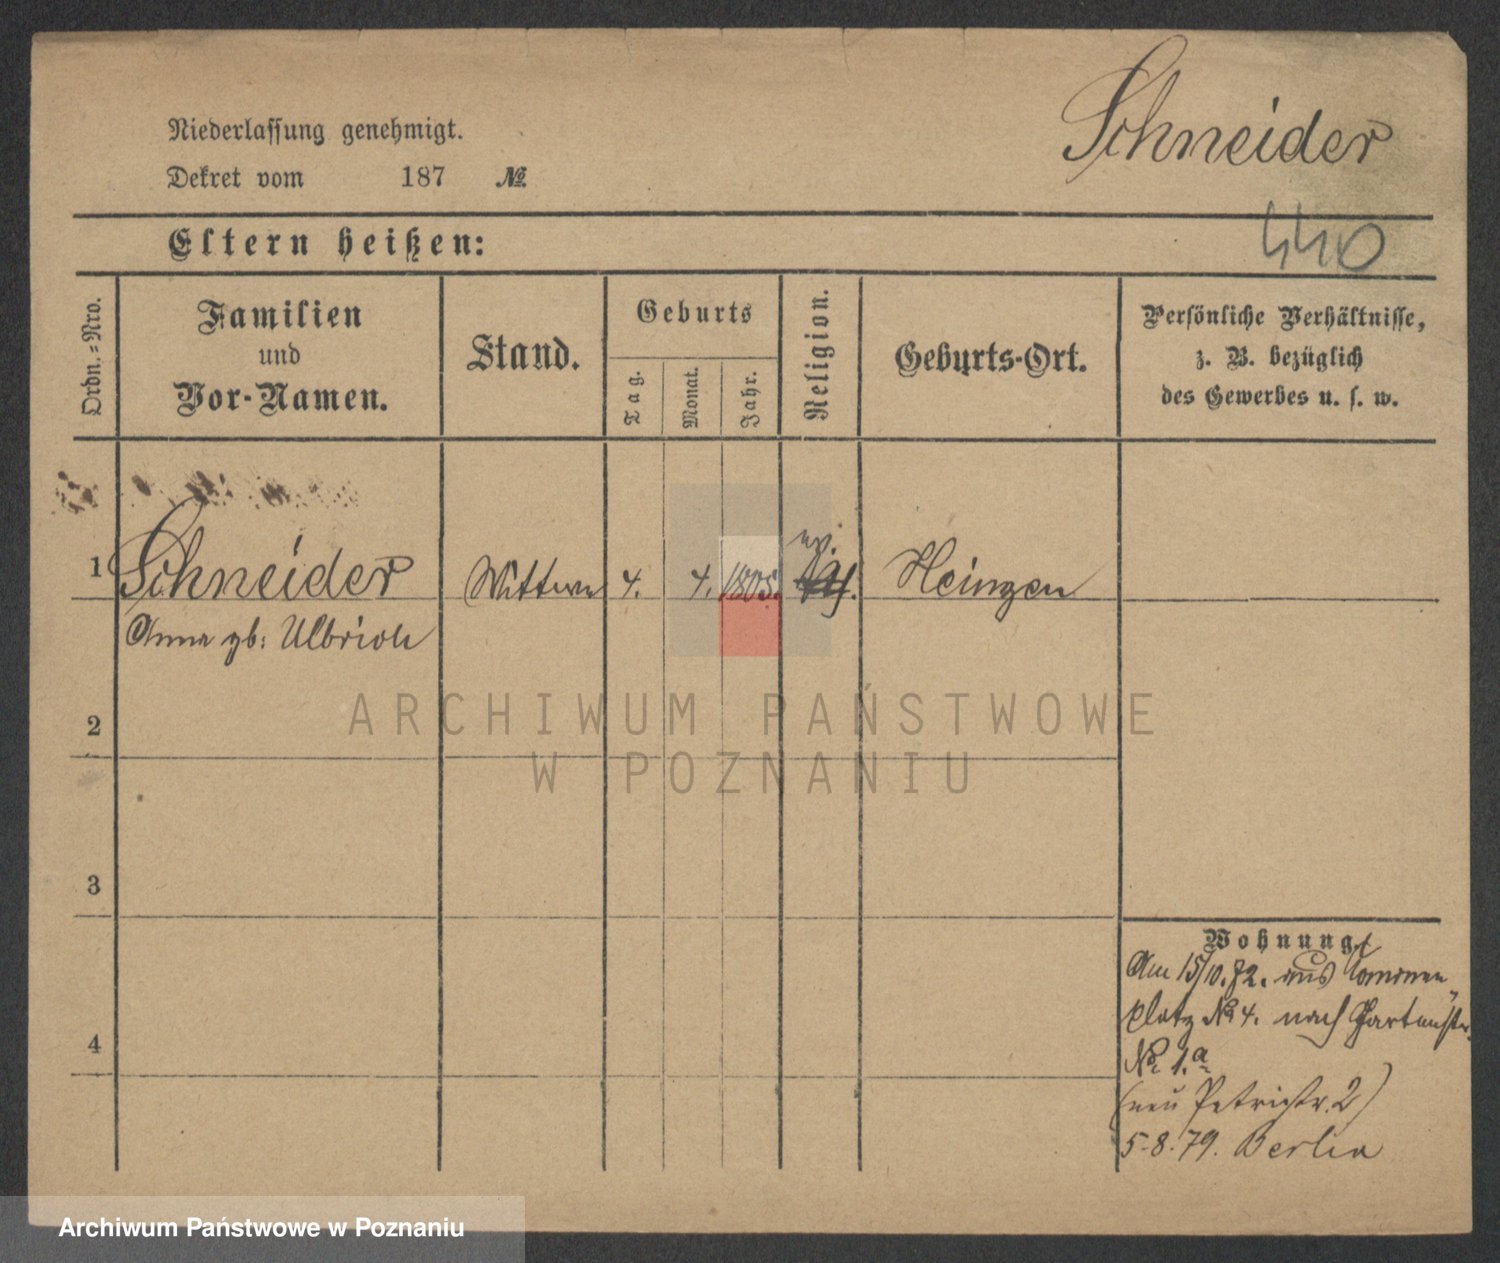 Schneider
Niederlassung genehmigt.
Dekret vom 187 №
440
Eltern heißen:
Ordn.-Nro.
Familien
und
Vor-Namen.
Stand.
Geburts
Tag.
Monat.
Jahr.
Religion.
Geburts-Ort.
Persönliche Verhältnisse,
z. B. bezüglich
des Gewerbes u. s. w.
ev.
1 Schneider Wittwe 4. 4. 1805. Heinzen
Anna gb: Ulbrich
2
ARCHIWUM PAŃSTWOWE
W POZNANIU
3
Wohnung.
Am 15/10.72. aus
platz № 4. nach
4
№ 1.a
(neu Petristr. 2)
5.8.79. Berlin
Archiwum Państwowe w Poznaniu